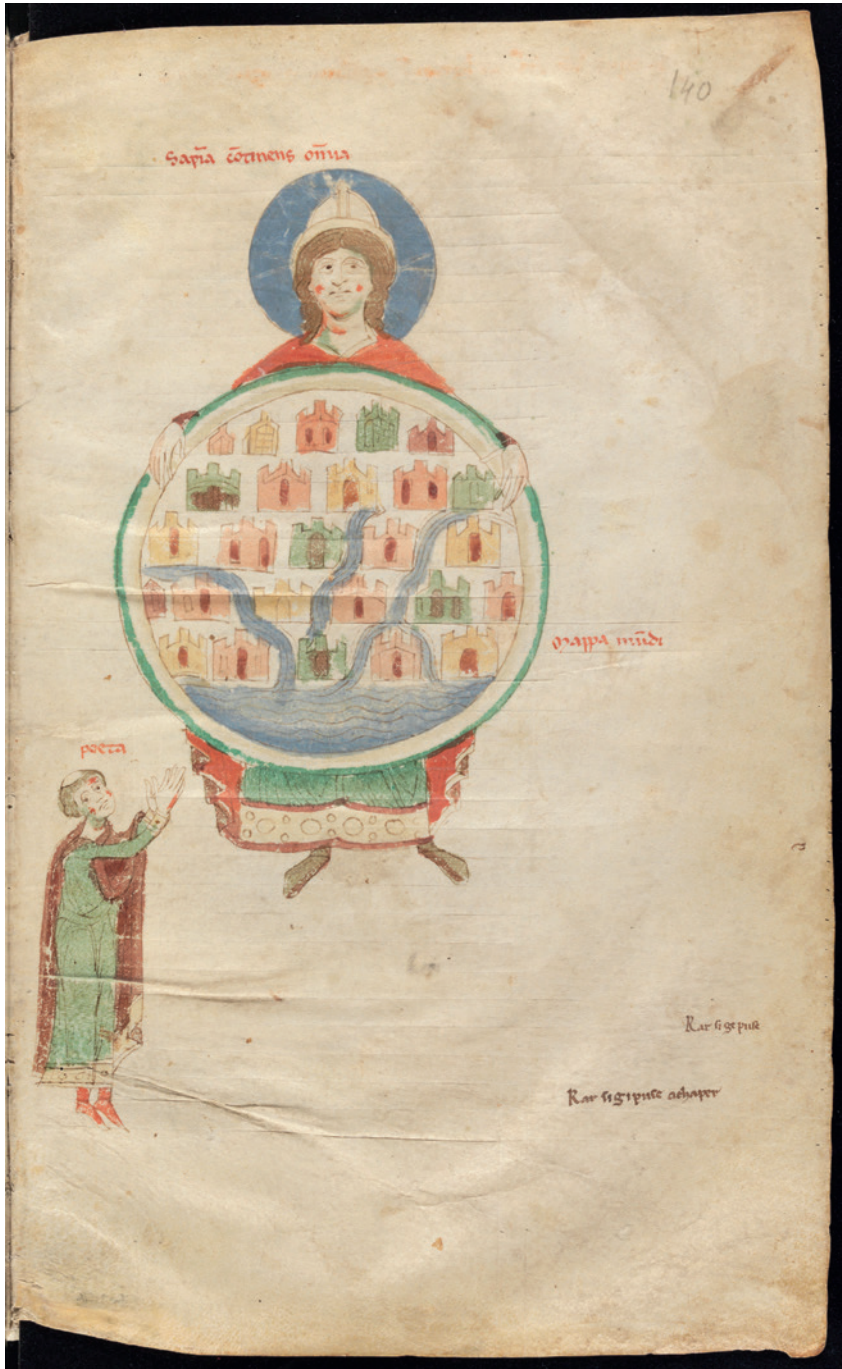 140
Sapīa cōtinens om̄ia
Mappa mūdi
poeta
Kar si ge puse
Kar si gi puse achaper